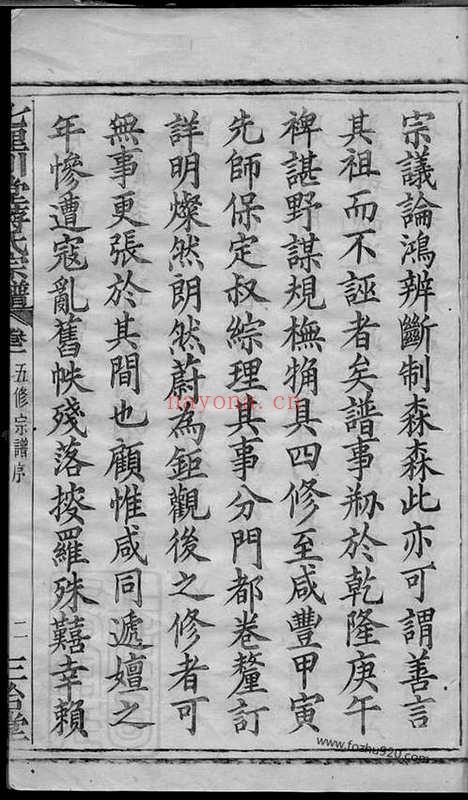 宗議論鴻辨斷制森森此亦可謂善言
其祖而不誣者矣譜事剏於乾隆庚午
裨諶野謀規橅觕具四修至咸豐甲寅
先師保定叔綜理其事分門都卷釐訂
詳明燦然朗然蔚為鉅觀後之修者可
無事更張於其間也顧惟咸同遞嬗之
年慘遭寇亂舊帙殘落按羅殊囏幸賴
氏宗譜
五修宗譜序
二
三治堂
nayona.cn
www.fozhu920.com